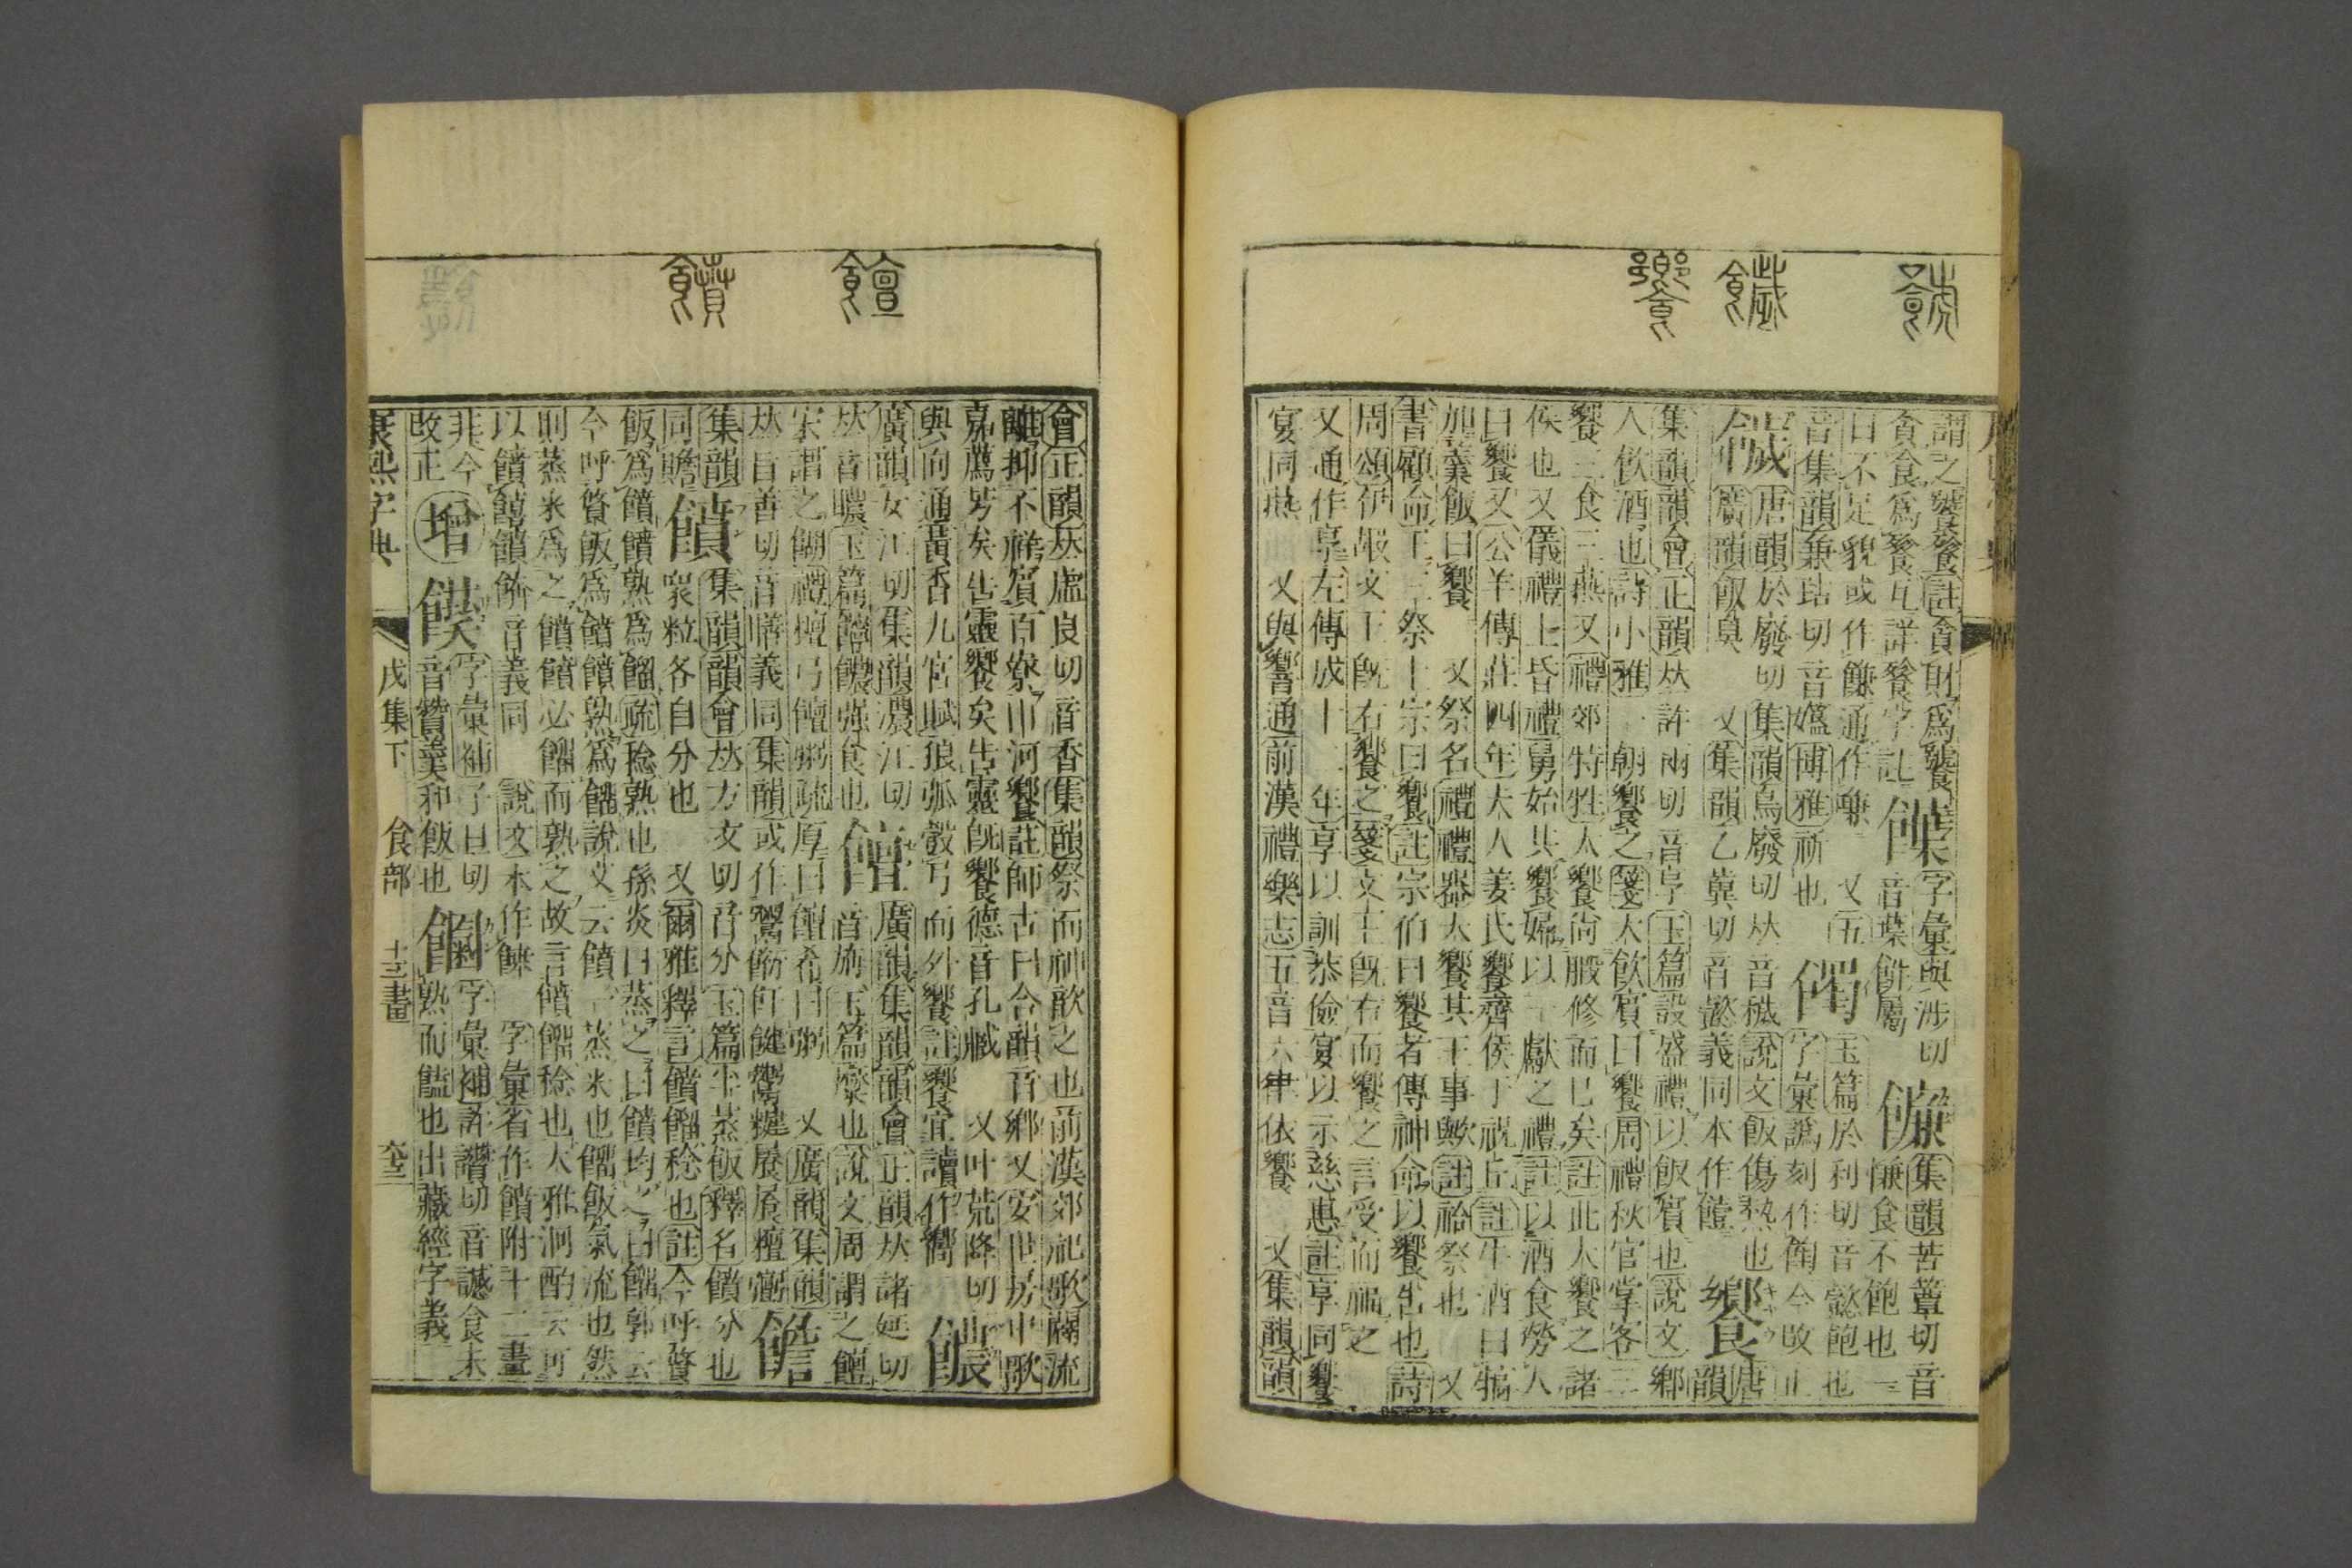 謂之饕餮註貪財爲饕 字彙與涉切 集韻苦簟切音
貪食爲餮互詳餮字註 音葉餅屬 慊食不飽也一
曰不足貌或作 通作嗛 又五 玉篇於利切音懿飽也
音集韻兼玷切音 博雅 也 字彙譌刻作 今改正
饖 唐韻於廢切集韻烏廢切𠀤音穢說文飯傷熱也 饗 唐
廣韻飯臭 又集韻乙冀切音懿義同本作饐 韻
集韻韻會正韻𠀤許兩切音享玉篇設盛禮以飯賓也說文鄉
人飮酒也詩小雅一朝饗之箋大飮賓曰饗周禮秋官掌客三
饗三食三燕又禮郊特牲大饗尚腶修而已矣註此大饗之諸
侯也又儀禮士昏禮舅姑共饗婦以一獻之禮註以酒食勞人
曰饗又公羊傳莊四年夫人姜氏饗齊侯于祝丘註牛酒曰犒
加羹飯曰饗 又祭名禮禮器大饗其王事歟註祫祭也 又
書顧命王三祭上宗曰饗註宗伯曰饗者傳神命以饗告也詩
周頌伊嘏文王旣右饗之箋文王旣右而饗之言受而福之
又通作享左傳成十二年享以訓恭儉宴以示慈惠註享同饗
宴同燕 又與響通前漢禮樂志五音六律依饗 又集韻韻
會正韻𠀤虛良切音香集韻祭而神歆之也前漢郊祀歌闢流
離抑不祥賓百寮山河饗註師古曰合韻音鄕又安世房中歌
嘉薦芳矣告靈饗矣告靈旣饗德音孔臧 又叶荒降切
與向通黃香九宮賦狼弧彀弓而外饗註饗宜讀作嚮
廣韻女江切集韻濃江切 廣韻集韻韻會正韻𠀤諸延切
𠀤音 玉篇 饢强食也 饘 音旃玉篇糜也說文周謂之饘
宋謂之餬禮檀弓饘粥疏厚曰饘希曰粥 又廣韻集韻
𠀤旨善切音𦠄義同集韻或作 飦 糎
集韻韻會𠀤方文切音分玉篇半蒸飯釋名饙分也
同贍 饙 衆粒各自分也 又爾雅釋言饙餾稔也註今呼䬸
飯爲饙饙熟爲餾疏稔熟也孫炎曰蒸之曰饙均之曰餾郭云
今呼䬸飯爲饙饙熟爲餾說文云饙一蒸米也餾飯氣流也然
則蒸米爲之饙饙必餾而熟之故言饙餾稔也大雅泂酌云可
以饙饎饙餴音義同 說文本作餴 字彙省作饙附十二畫
非今 增 字彙補子旦切 字彙補 切音 食未
改正 音贊羹和飯也 熟而饐也出藏經字義
康熙字典 戌集下 食部 十三畫